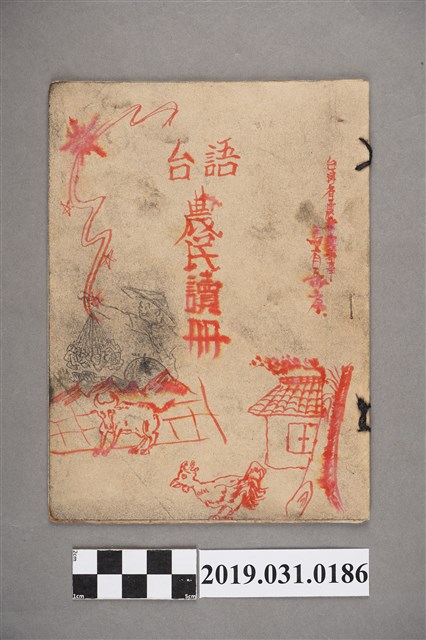 台語
農民讀冊
2cm
1cm
5cm
2019.031.0186